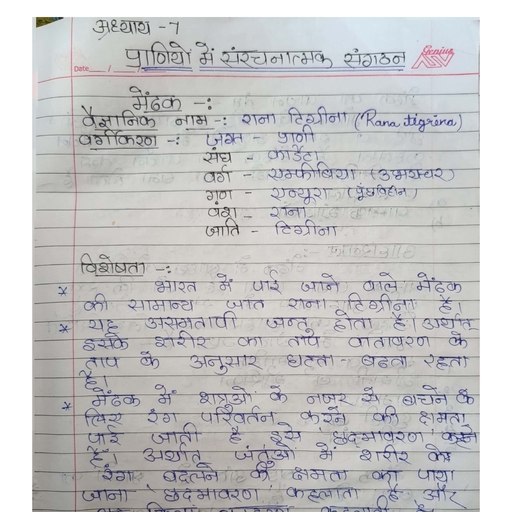 अध्याय - 7
प्राणियों में संरचनात्मक संगठन
Genius
Date
मेंढक -:
वैज्ञानिक नाम -: राना टिग्रीना (Rana tigrina)
वर्गीकरण -: जगत - प्राणी
संघ - कॉर्डेटा
वर्ग - एम्फीबिया (उभयचर)
गण - एन्यूरा (पूंछविहीन)
वंश - राना
जाति - टिग्रीना
विशेषता -:
* भारत में पाई जाने वाले मेंढक
की सामान्य जात राना टिग्रीना है।
* यह असमतापी जन्तु होता है। अर्थात
इसके शरीर का ताप वातावरण के
ताप के अनुसार घटता - बढता रहता
है।
* मेंढक में शत्रुओं के नजर से बचने के
लिए रंग परिवर्तन करने की क्षमता
पाई जाती है इसे छदमावरण कहते
है। अर्थात जंतुओं में शरीर के
रंग बदलने की क्षमता का पाया
जाना छदमावरण कहलाता है और